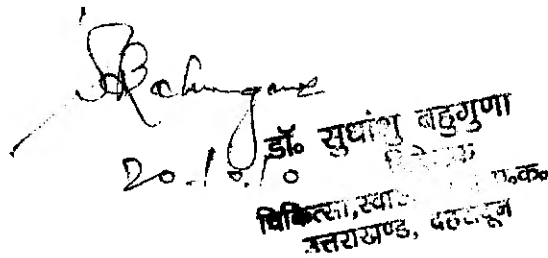 SBahuguna
20.10.10
डॉ० सुधांशु बहुगुणा
निदेशक
चिकित्सा, स्वा० प०क०
उत्तराखण्ड, देहरादून